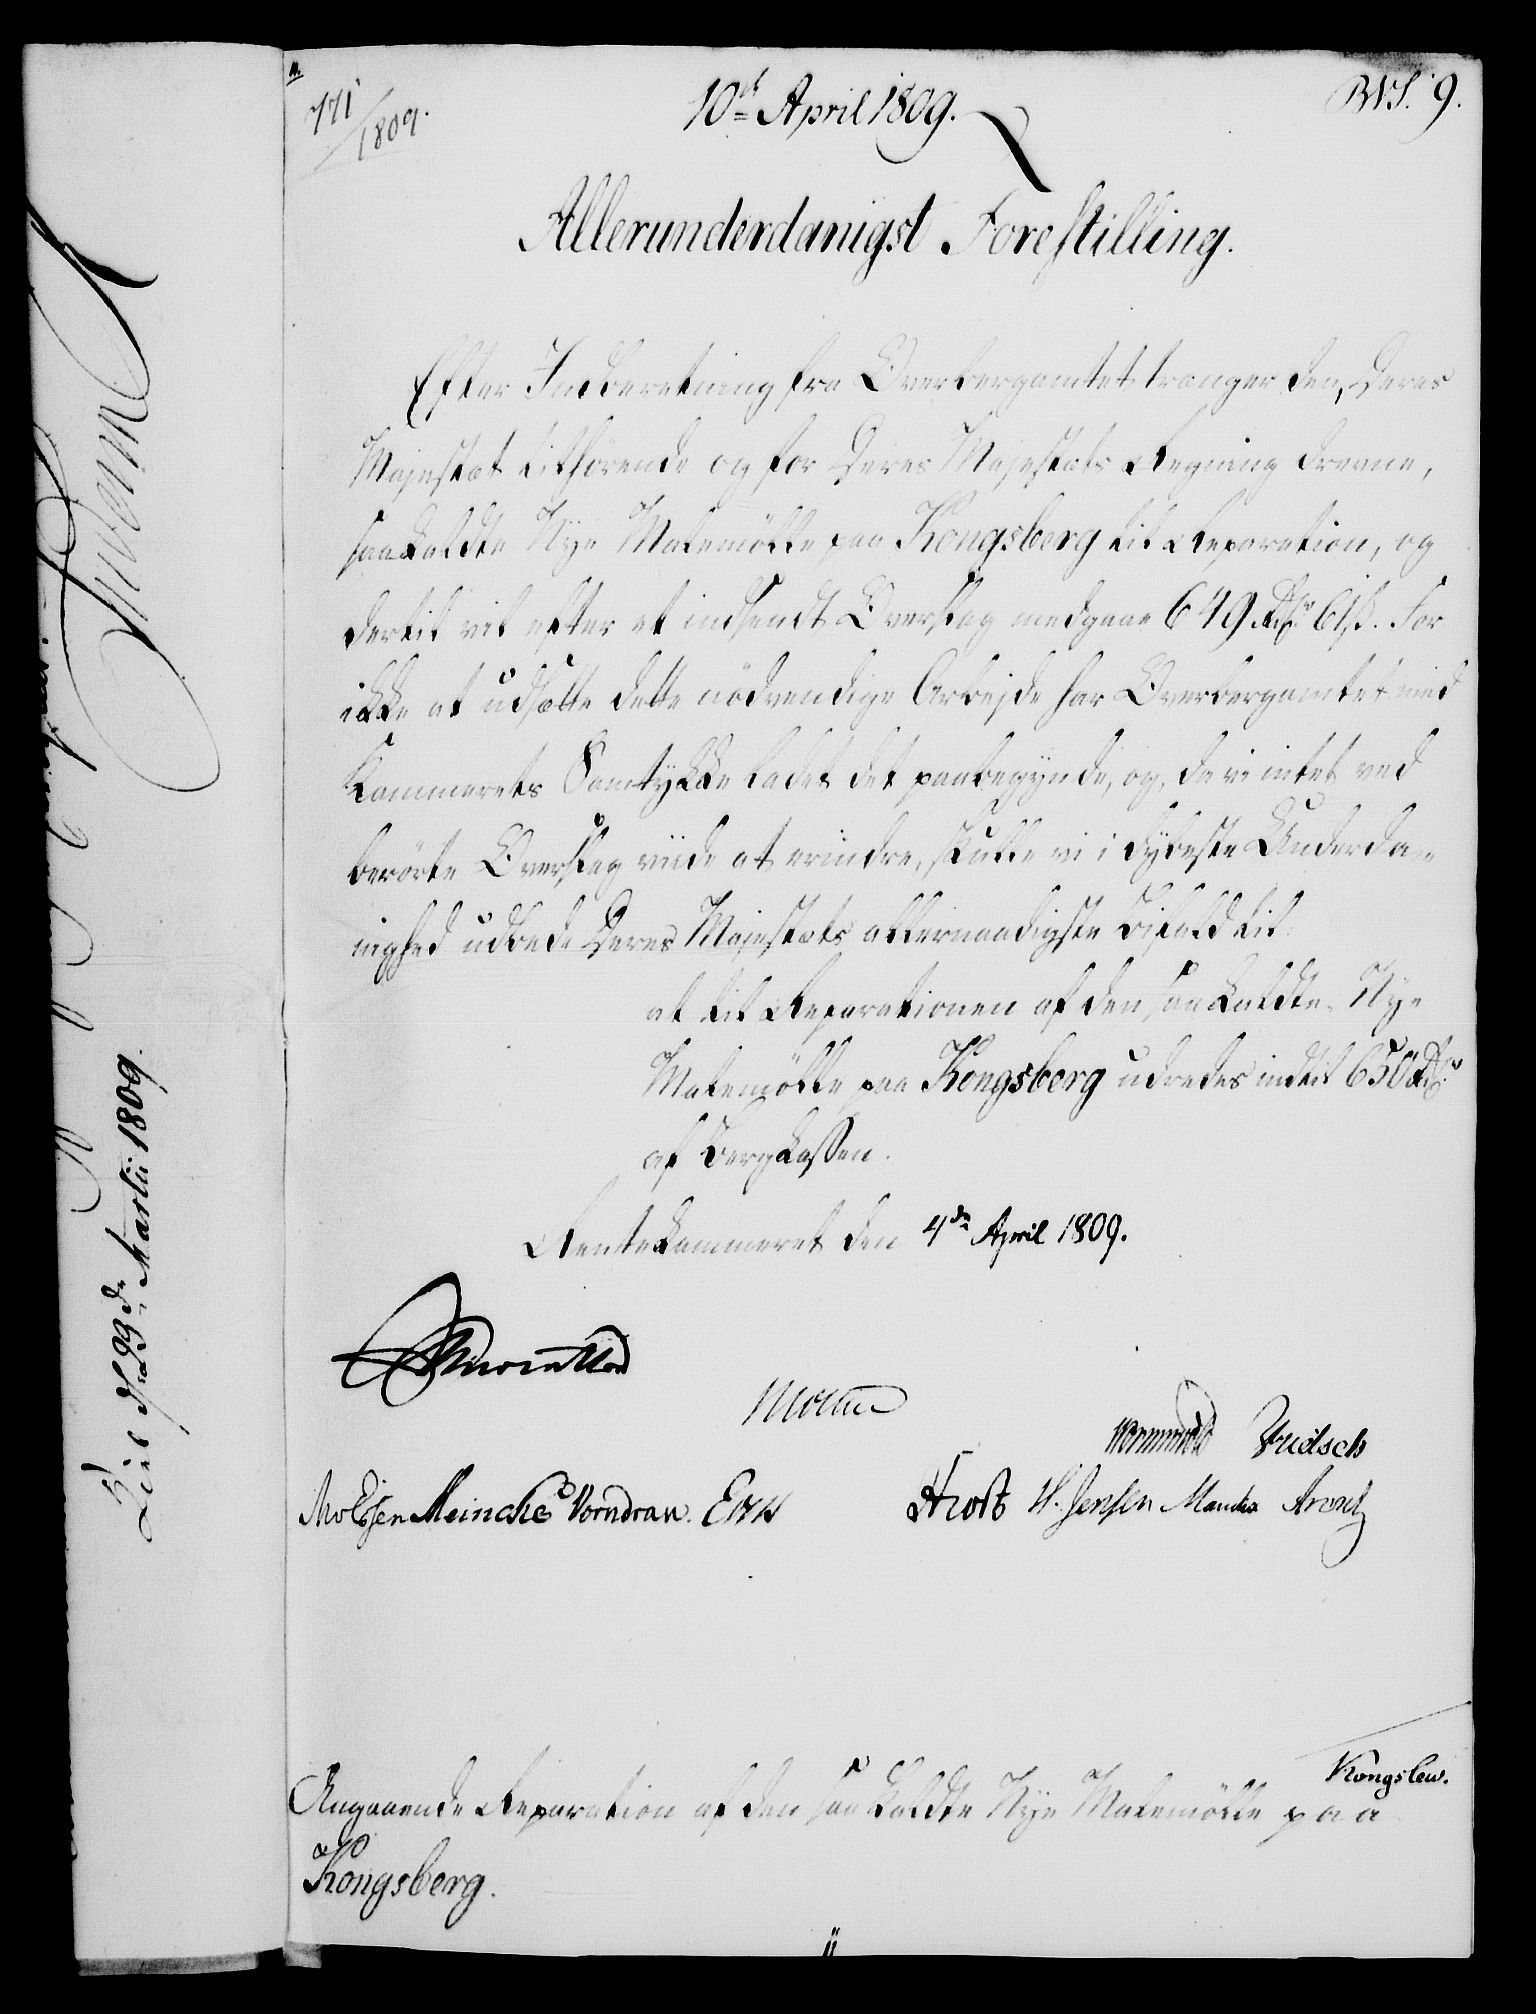 771/1809.
10de April 1809.
BVS. 9.
Allerunderdanigst Forestilling.
Efter Indberetning fra Overbergamtet trænger den, Deres
Majestæt tilhørende og for Deres Majestæts Regning drevne,
saakaldte Nye Malemölle paa Kongsberg til Reparation, og
dertil vil efter et indsendt Overslag medgaae 649 Rdr 61 ß. For
ikke at udsætte dette nödvendige Arbejde har Overbergamtet med
Kammerets Samtykke ladet det paabegynde, og, da vi intet ved
berörte Overslag viide at erindre, skulle vi i dybeste Underda-
nighed udbede Deres Majestæts allernaadigste Bifald til:
at til Reparationen af den saa kaldte Nye
Malemölle paa Kongsberg udredes indtil 650 Rdr
af Bergkassen.
Rentekammeret den 4de April 1809.
Moltke
Wormskiold
M v Essen Meincke Vorndran.
Hrost H. Jensen Manthe Arentz
Kongslew.
Angaaende Reparation af den saa kaldte Nye Malemölle paa
Kongsberg.
Kiel d. 29de Martii 1809.